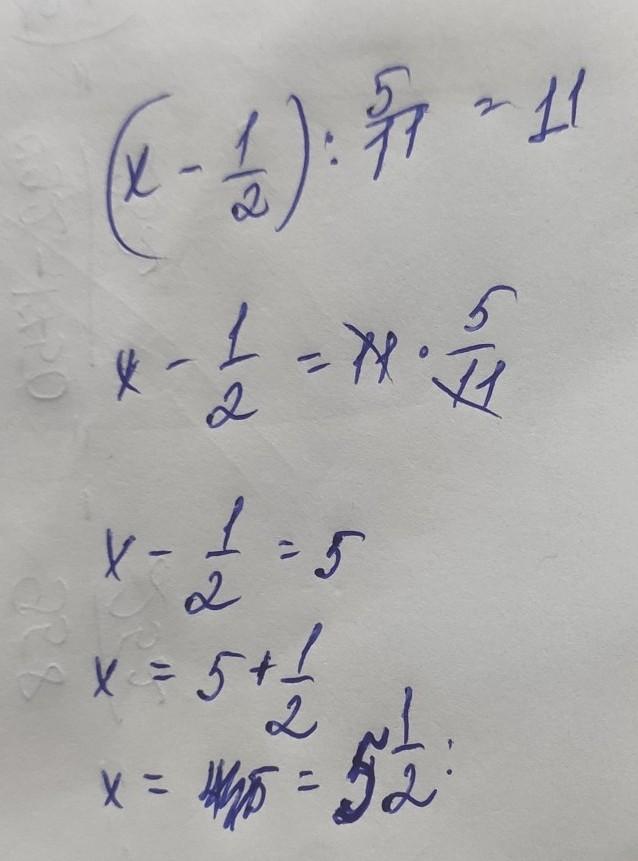 (x - 1/2) : 5/11 = 11
x - 1/2 = 11 · 5/11
x - 1/2 = 5
x = 5 + 1/2
x = = 5 1/2 :